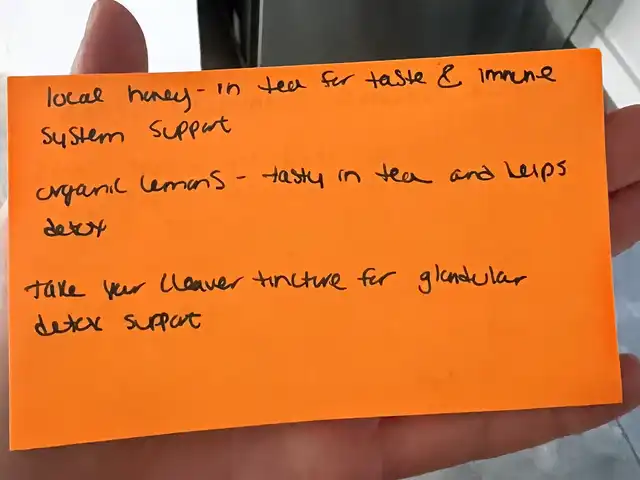 local honey - in tea for taste & immune
system support
organic lemons - tasty in tea and helps
detox
take your cleaver tincture for glandular
detox support